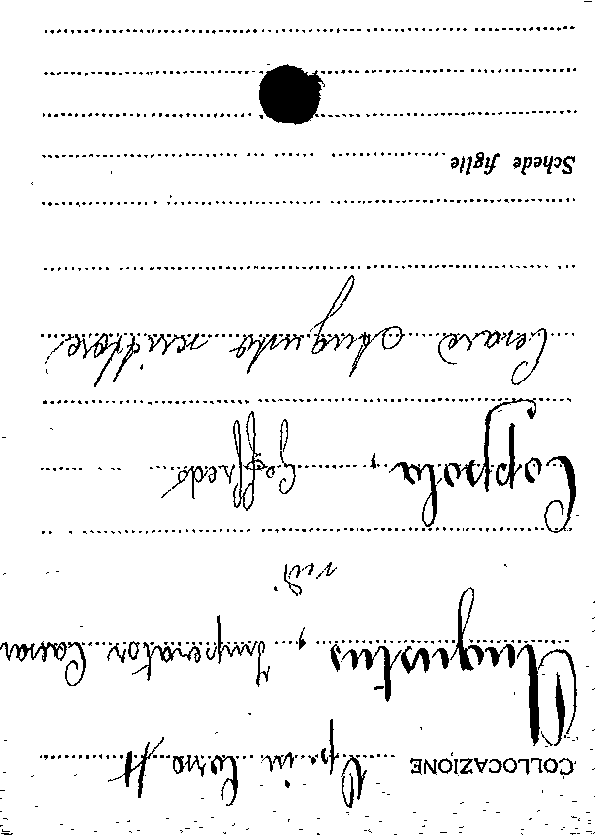 COLLOCAZIONE Op. in Corso A
Augustus, Imperator Caesar
vedi
Coppola, Goffredo
Cesare Augusto scrittore
Schede figlie